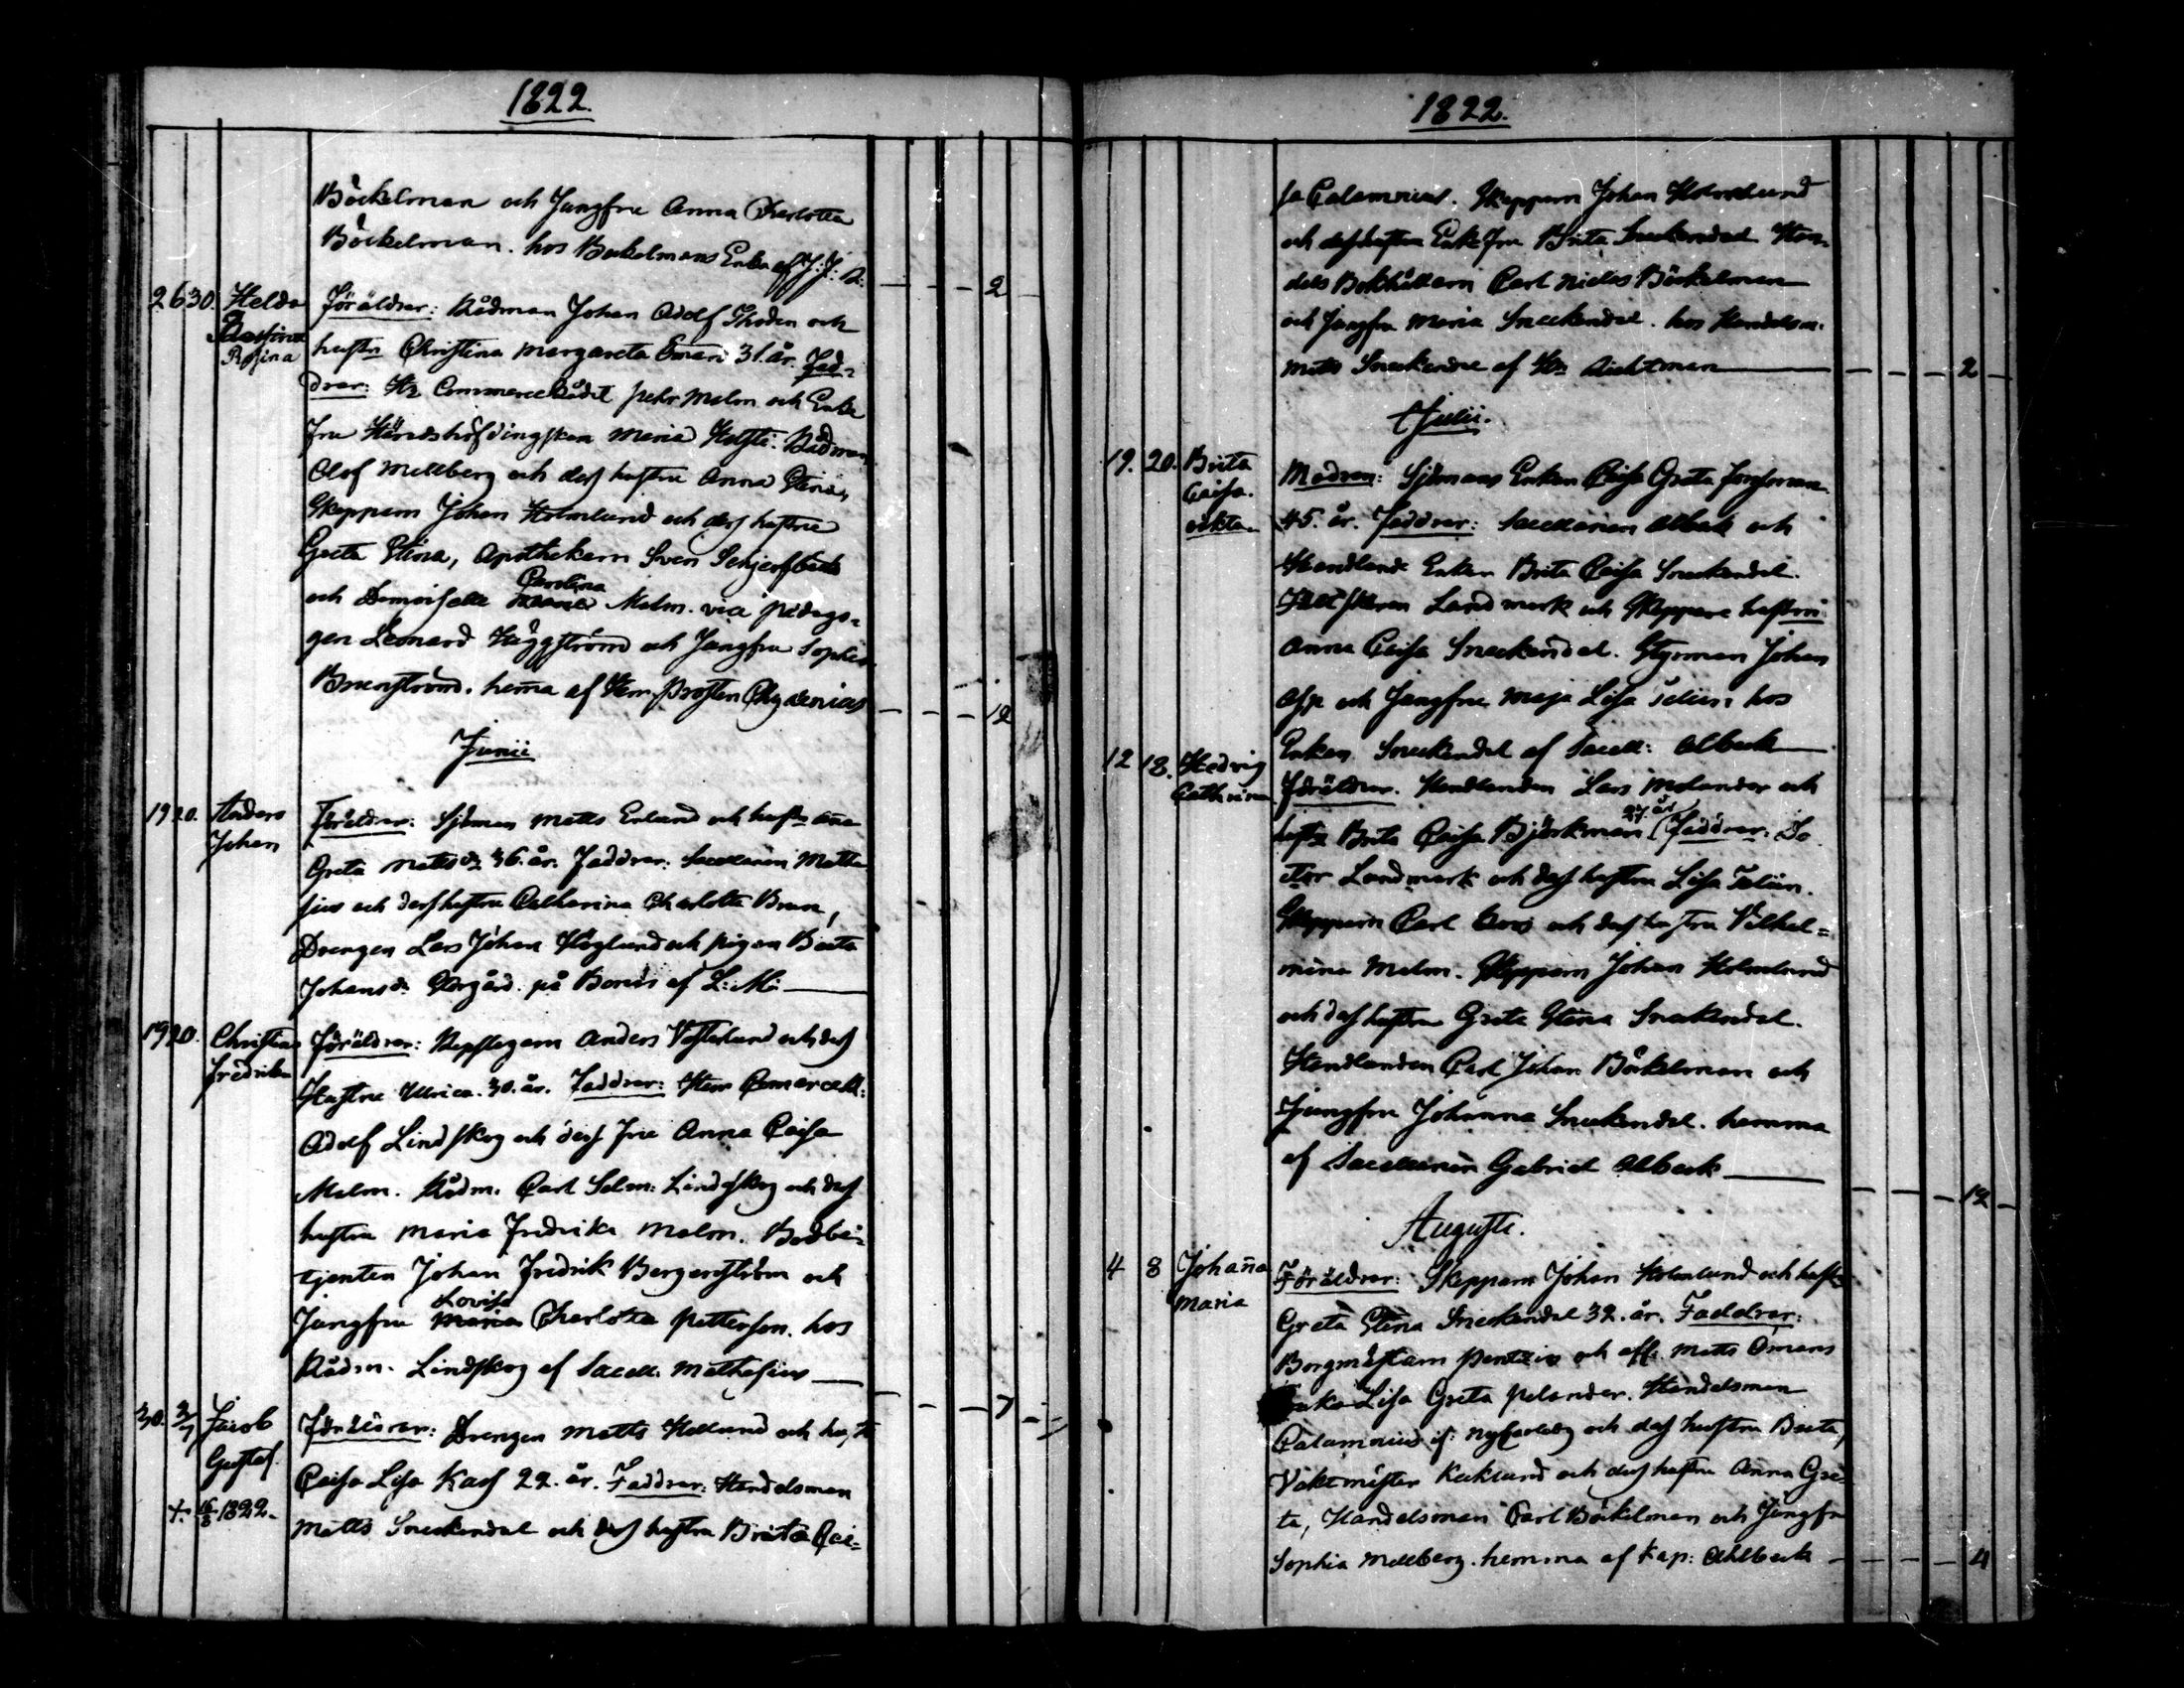 1822.
Böckelman och Jungfru Anna Charlotta
Böckelman. hos Bockelmans Enka af J: J:
2
26 30. Helda Föräldrar: Rådman Johan Adolf Thodén och
Rosina hustr Christina Margareta 31. år. Fad-
drar: Hr Commerce Rådet Pehr Malm och Enke
fru Häradshöfdingskan Maria Holsti. Rådman
Olof Mellberg och dess hustru Anna Stina,
Skeppam Johan Holmlund och dess hustru
Greta Stina, Apothekarn Sven Schjerfbeck
Carolina
och Demoiselle Malm. vice pædago-
gen Leonard Häggström och Jungfru Sophia
Brunström. hema af Herr Prosten Chydenius
12
Junii
19 20. Anders Föräldrar. Sjöman Matts Erlund och hustr Ana
Johan
Greta Mattsdr 36. år. Faddrar: Sacellanen Mathe
sius och dess hustru Catharina Charlotta Brun,
Drengen Lars Johan Höglund och pigan Brita
Johansdr Storgård. på Bonäs af L: M:
19 20. Christina Föräldrar: Repslagarn Anders Vesterlund och dess
Fredrika
Hustru Ulrica. 30. år. Faddrar: Herr Comerce R:
Adolf Lindskog och dess Fru Anna Caisa
Malm. Rådm. Carl Selm: Lindskog och dess
hustru Maria Fredrika Malm. Bodbe-
tjenten Johan Fredrik Bergenström och
Lovisa
Jungfru Maria Charlotta Petterson. hos
Rådm. Lindskog af Sacell: Mathesius
7
30. 3/7 Jacob Föräldrar: Drengen Matts Hollund och hustr
Gustaf.
Caisa Lisa Kass 22. år. Faddrar: Handelsman
+. 16/8 1822.
Matts Sneckendal och dess hustru Brita Cai-
1822.
sa Calamnius. Skeppam Johan Holmlund
och dess hustru Enke fru Brita Sneckendal Han-
dels Bokhållarn Carl Niclas Böckelman
och Jungfru Maria Sneckendal. hos Handelsm.
Matts Sneckendal af Hr Aichtman
2
Julii.
19. 20. Brita Modren: Sjömans Enkan Caisa Greta Forssman
Caisa.
oäkta 45. år. Faddrar: Sacellanen Albeck och
Handlande Enkan Brita Caisa Sneckendal.
Fältskären Landmark och Skeppare hustrun
Anna Caisa Sneckendal. Styrman Johan
Asp och Jungfru Maja Lisa Telin hos
Enkan Sneckendal af Sacell: Albeck
12 18. Hedvig Föräldrar. Handlanden Lars Molander och
Catharina
27. år
hustr Brita Caisa Björkman Faddrar: Do
ctor Landmark och dess hustru Lisa Telin.
Skeppam Carl och dess hustru Vilhel=
mina Malm. Skeppam Johan Holmlund
och dess hustru Greta Stina Sneckendal.
Handlanden Carl Johan Böckelman och
Jungfru Johanna Sneckendal. hemma
af Sacellanen Gabriel Albeck
12
Augusti.
4 8 Johaña Föräldrar: Skeppam Johan Holmlund och hustr
Maria
Greta Stina Sneckendal 32. år. Faddrar:
Borgmästarn Pentzin och aff: Matts Ömans
Enka Lisa Greta Pelander. Handelsman
Calamnius if: Nykarleby och dess hustru Brita,
Vaktmäster Kecklund och dess hustru Anna Gre
ta, Handelsman Carl Böckelman och Jungfru
Sophia Mellberg. hemma af Kap: Ahlbeck
4